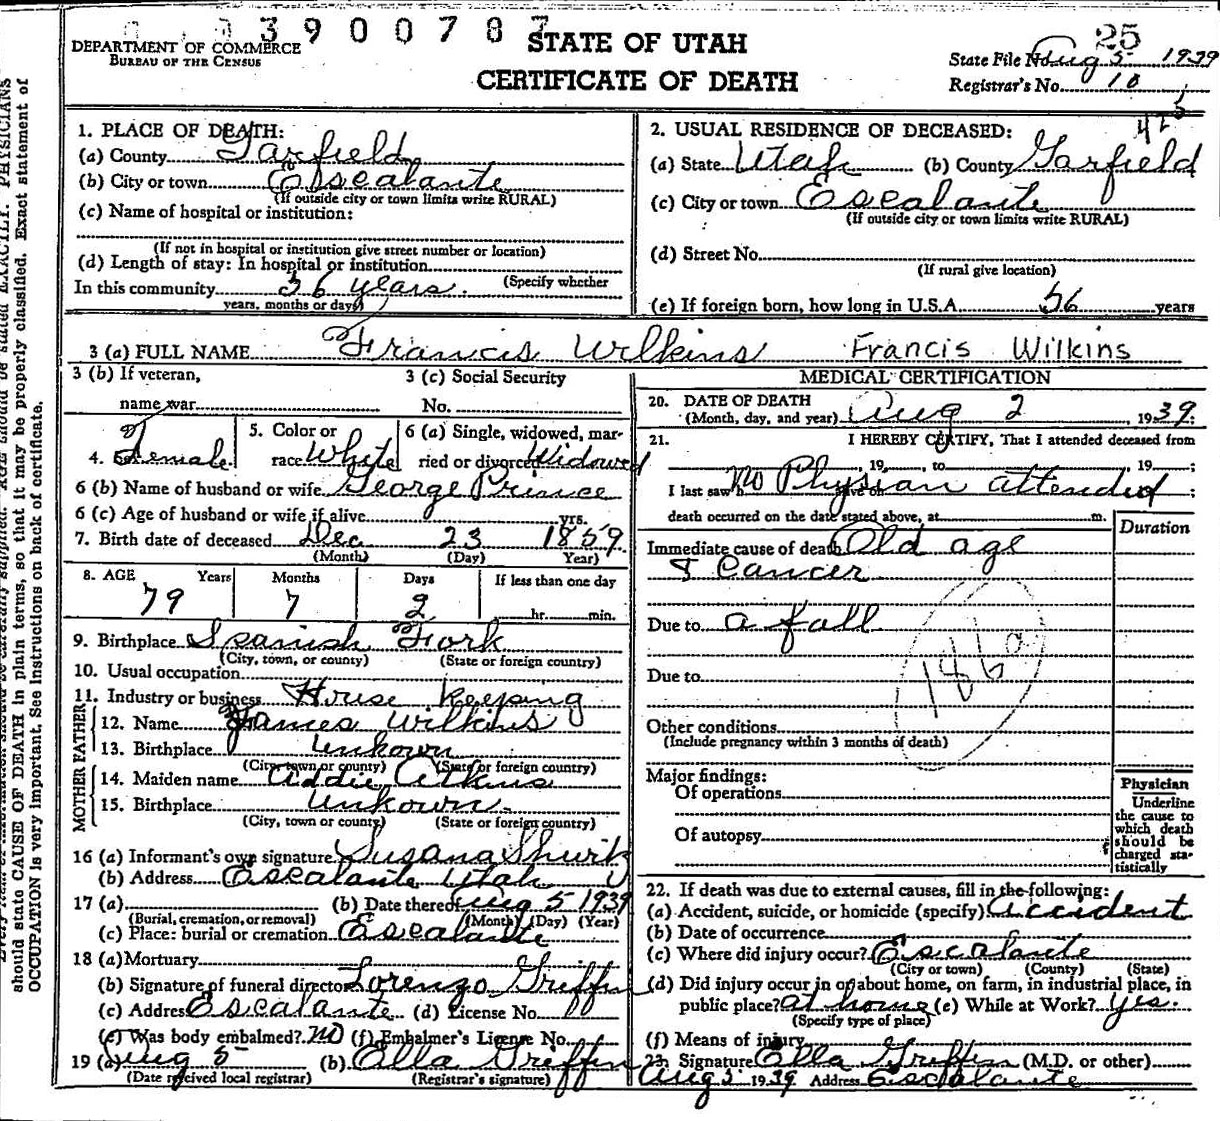 3900787
DEPARTMENT OF COMMERCE
BUREAU OF THE CENSUS
STATE OF UTAH
CERTIFICATE OF DEATH
25
State File No. Aug 5 1939
Registrar's No. 10
1. PLACE OF DEATH:
(a) County Garfield
(b) City or town Escalante
(If outside city or town limits write RURAL)
(c) Name of hospital or institution:
(If not in hospital or institution give street number or location)
(d) Length of stay: In hospital or institution
(Specify whether
In this community 56 years.
years, months or days)
2. USUAL RESIDENCE OF DECEASED:
(a) State Utah (b) County Garfield
(c) City or town Escalante
(If outside city or town limits write RURAL)
(d) Street No.
(If rural give location)
(e) If foreign born, how long in U.S.A. 56 years
3 (a) FULL NAME Francis Wilkins Francis Wilkins
3 (b) If veteran,
name war
3 (c) Social Security
No.
4. Sex Female
5. Color or
race White
6 (a) Single, widowed, mar-
ried or divorced Widowed
6 (b) Name of husband or wife George Prince
6 (c) Age of husband or wife if alive yrs.
7. Birth date of deceased Dec 23 1859
(Month) (Day) Year)
8. AGE Years Months Days If less than one day
79 7 2 hr. min.
9. Birthplace Spanish Fork
(City, town, or county) (State or foreign country)
10. Usual occupation
11. Industry or business House Keeping
FATHER
12. Name James Wilkins
13. Birthplace Unkown
(City, town or county) (State or foreign country)
MOTHER
14. Maiden name Addie Atkins
15. Birthplace Unkown.
(City, town or county) (State or foreign country)
16 (a) Informant's own signature Susana
(b) Address Escalante Utah
17 (a) (b) Date thereof Aug 5 1939
(Burial, cremation, or removal) (Month) (Day) (Year)
(c) Place: burial or cremation Escalante
18 (a) Mortuary
(b) Signature of funeral director Lorenzo Griffin
(c) Address Escalante (d) License No.
(e) Was body embalmed? No (f) Embalmer's License No.
19 (a) Aug 5 (b) Ella Griffin
(Date received local registrar) (Registrar's signature)
MEDICAL CERTIFICATION
20. DATE OF DEATH
(Month, day, and year) Aug 2, 1939.
21. I HEREBY CERTIFY, That I attended deceased from
, 19 , to , 19 ;
I last saw h alive on ;
No Physian attended
death occurred on the date stated above, at m.
Duration
Immediate cause of death Old age
& Cancer
Due to a fall
Due to
186a
Other conditions
(Include pregnancy within 3 months of death)
Major findings:
Of operations
Of autopsy
Physician
Underline
the cause to
which death
should be
charged sta-
tistically
22. If death was due to external causes, fill in the following:
(a) Accident, suicide, or homicide (specify) Accident
(b) Date of occurrence
(c) Where did injury occur? Escalante
(City or town) (County) (State)
(d) Did injury occur in or about home, on farm, in industrial place, in
public place? at home (e) While at Work? Yes.
(Specify type of place)
(f) Means of injury
23. Signature Ella Griffin (M.D. or other)
Aug 5 1939 Address Escalante
should state CAUSE OF DEATH in plain terms, so that it may be properly classified. Exact statement of
OCCUPATION is very important. See instructions on back of certificate.